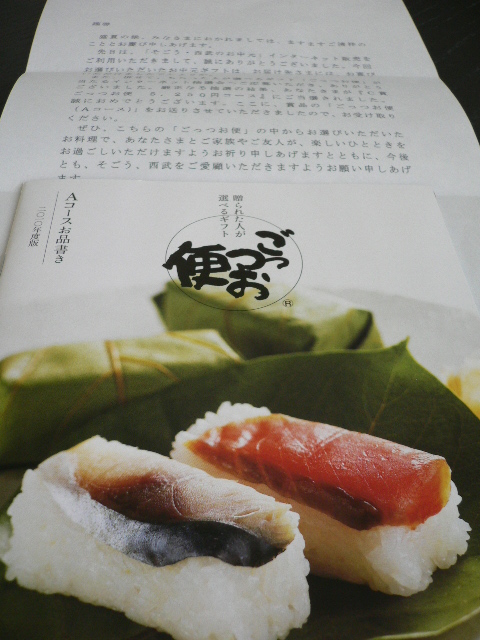 謹啓
盛夏の候、みなさまにおかれましては、ますますご清祥の
こととお慶び申しあげます。
先日は、「そごう・西武のお中元」インターネット販売を
ご利用いただきまして、誠にありがとうございました。今回
お選びいただいたお中元ギフトは、お届けをさいは、お喜び
ございました。厳正なる抽選の結果、あなたさまがＷ賞
誠におめでとうございます。ここに、賞品の「ごっつお便
（Ａコース）」をお送りさせていただきましたので、お受け取り
ください。
ぜひ、こちらの「ごっつお便」の中からお選びいただいた
お料理で、あなたさまとご家族やご友人が、楽しいひとときを
お過ごしいただけますようお祈り申しあげますとともに、今後
とも、そごう、西武をご愛顧いただきますようお願い申しあげ
ます。
贈られた人が
選べるギフト
ごっつお便
®
Aコースお品書き
二〇一〇年度版